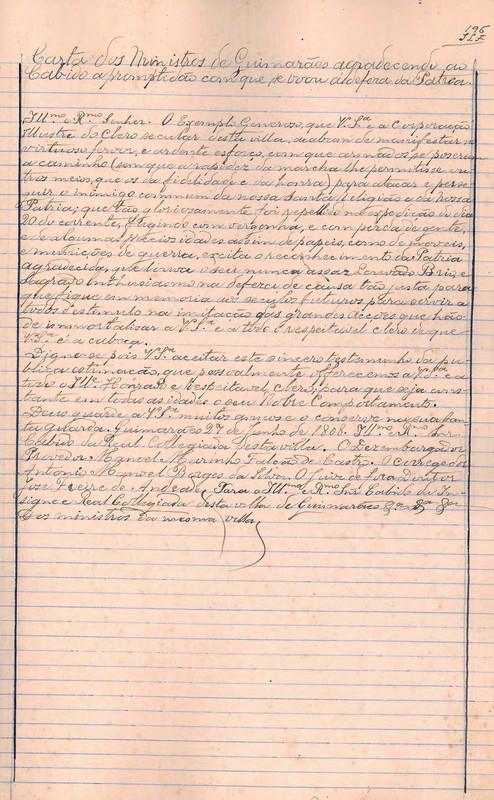 196
Carta dos Ministros de Guimarães agradecendo ao
Cabido a promptidão com que se voou á defeza da Patria.
Ill.mo e R.mo Senhor. O Exemplo Generoso, que V. S.a e a Corporação
Illustre do Clero secular desta villa, acabam de manifestar no
virtuoso fervor, e ardente esforço, com que armados se pozeram
a caminho (sem que a rapidez da marcha lhe permitisse ou-
tros meios, que os da fidelidade e da honra) para atacar e perse-
guir o inimigo commum da nossa Santa Religião e da nossa
Patria; que tão gloriosamente foi repellido na expedição do dia
20 do corrente, fugindo com vergonha, e com perda de gente,
e de algumas preciosidades assim de papeis, como de moveis,
e munições de guerra, excita o reconhecimento da Patria
agradecida, que louva o seu nunca assaz Louvado Brio, e
Sagrado Enthusiasmo na defeza de causa tão justa para
que fique em memoria aos seculos futuros para servir a
todos d'estimulo na imitação das grandes acções que hão
de immortalisar a V. S.a e a todo o respeitavel clero de que
V. S.a é a cabeça.
Digne-se pois V. S.a aceitar este sincero testemunho da pu-
blica estimação, que pessoalmente offerecemos a V. S.a e a
todo o Ill.e Honrado e Respeitavel clero, para que seja cons-
tante em todas as idades o seu Nobre Comportamento.
Deus guarde a V. S.a muitos annos e o conserve na sua San-
ta guarda. Guimarães 27 de Junho de 1808. Ill.mo e R.mo Snr.
Cabido da Real Collegiada desta villa. O Dezembargador
Provedor Manoel Marinho Falcão de Castro. O Corregedor
Antonio Manoel Borges da Silva. O Juiz de Fóra Doutor
José Freire de Andrade. Para o Ill.mo e R.mo Snr. Cabido da In-
signe e Real Collegiada desta villa de Guimarães
Dos ministros da mesma villa